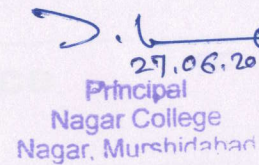 27.06.20
Principal
Nagar College
Nagar, Murshidabad